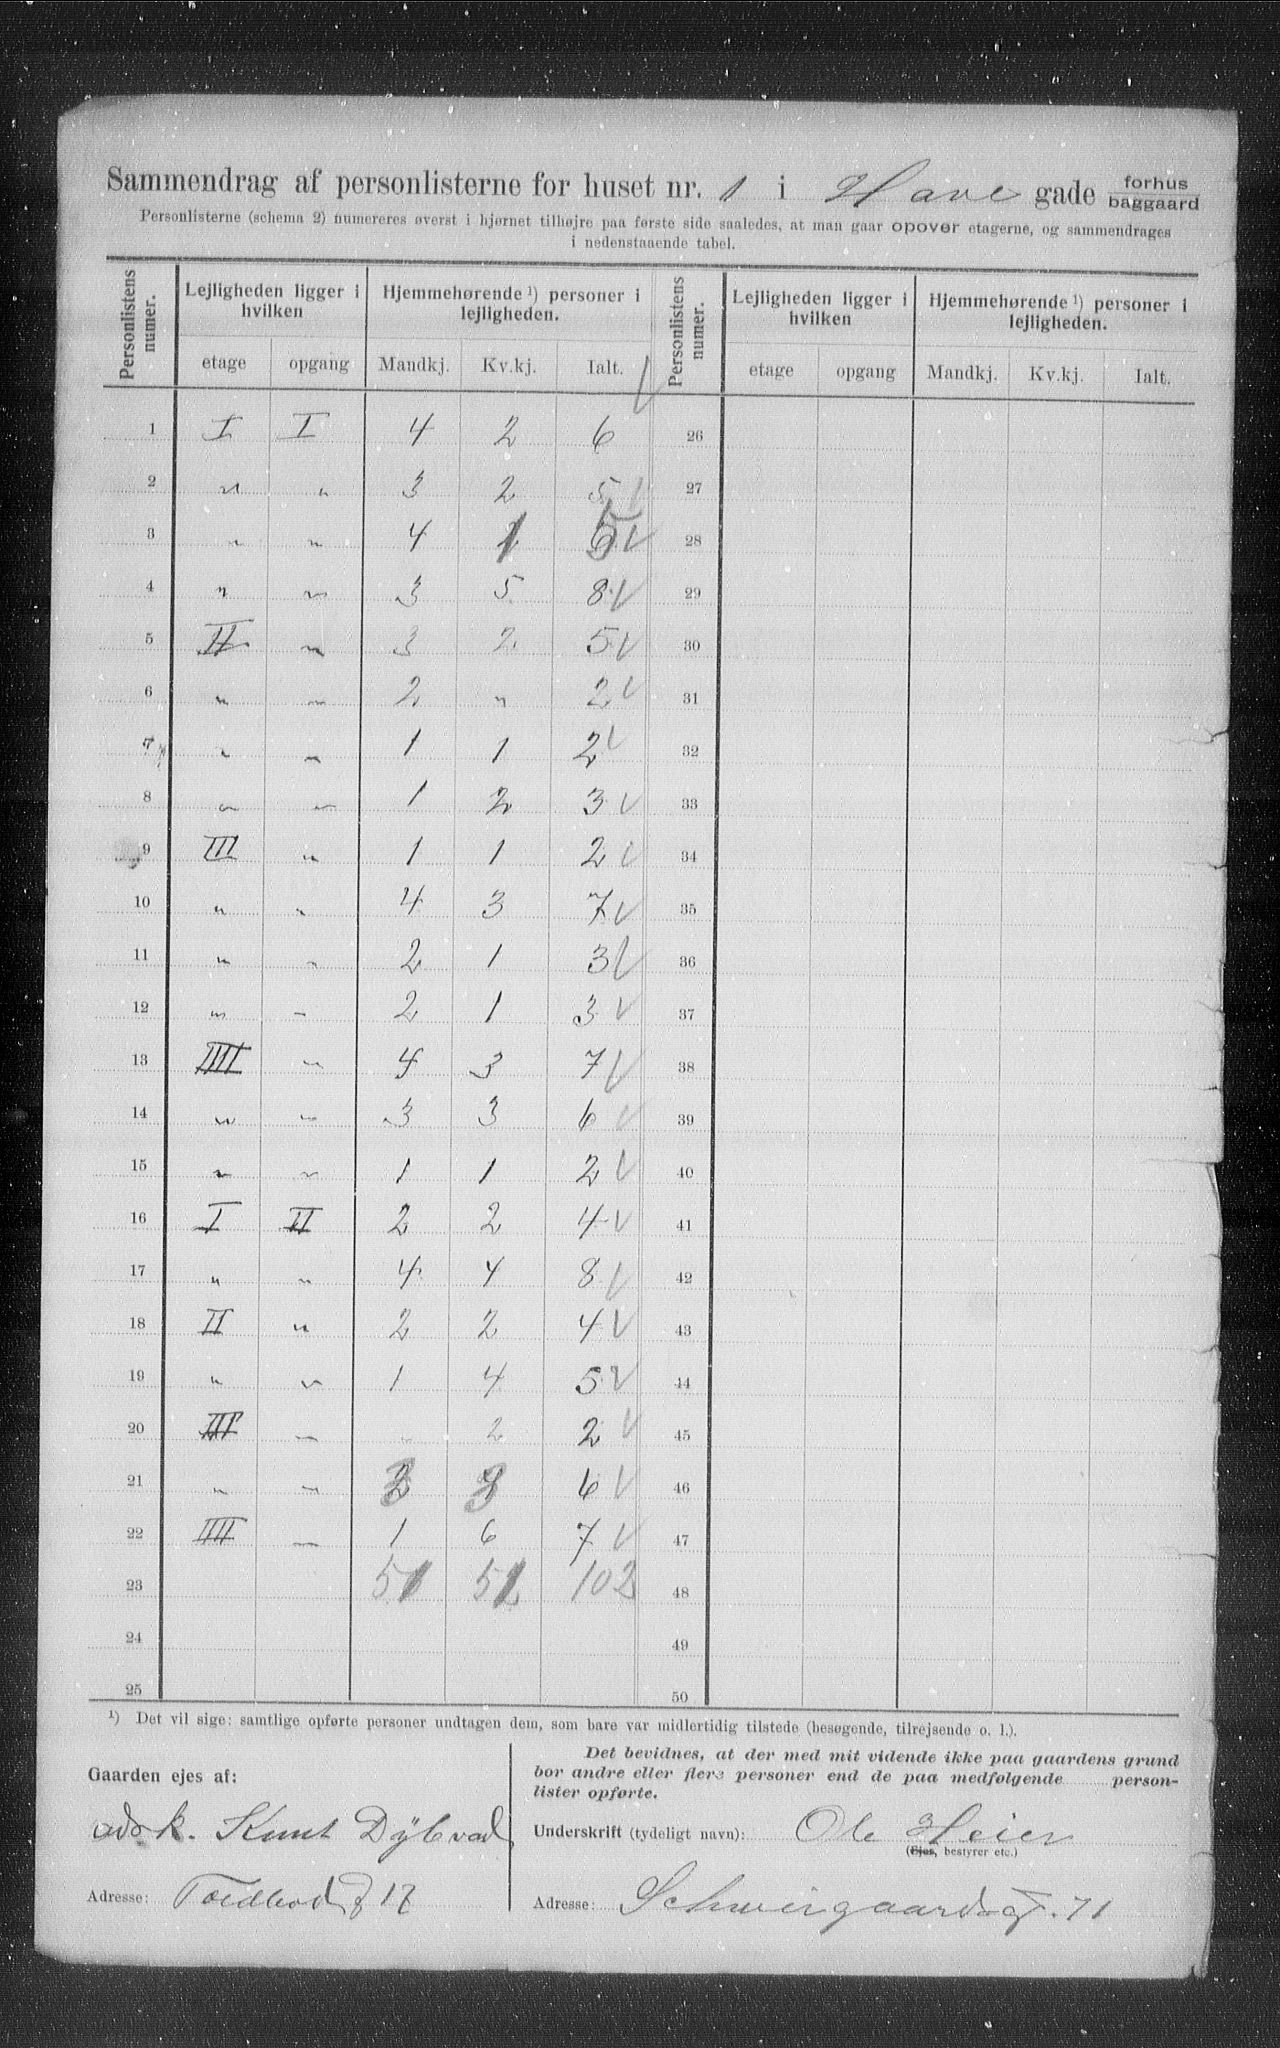 Sammendrag af personlisterne for huset nr. 1 i Have gade forhus baggaard
Personlisterne (schema 2) numereres øverst i hjørnet tilhøjre paa første side saaledes, at man gaar opover etagerne, og sammendrages
i nedenstaaende tabel.
Personlistens numer. Lejligheden ligger i hvilken Hjemmehørende ¹) personer i lejligheden. Personlistens numer. Lejligheden ligger i hvilken Hjemmehørende ¹) personer i lejligheden.
etage opgang Mandkj. Kv.kj. Ialt. etage opgang Mandkj. Kv.kj. Ialt.
1 I I 4 2 6 26
2 " " 3 2 5 27
3 " " 4 1 5 28
4 " " 3 5 8 29
5 II " 3 2 5 30
6 " " 2 " 2 31
7 " " 1 1 2 32
8 " " 1 2 3 33
9 III " 1 1 2 34
10 " " 4 3 7 35
11 " " 2 1 3 36
12 " " 2 1 3 37
13 IIII " 4 3 7 38
14 " " 3 3 6 39
15 " " 1 1 2 40
16 I II 2 2 4 41
17 " " 4 4 8 42
18 II " 2 2 4 43
19 " " 1 4 5 44
20 III " " 2 2 45
21 " " 3 3 6 46
22 IIII " 1 6 7 47
23 51 51 102 48
24 49
25 50
¹) Det vil sige: samtlige opførte personer undtagen dem, som bare var midlertidig tilstede (besøgende, tilrejsende o. l.).
Gaarden ejes af:
Knut Dybvad
Adresse: 17
Det bevidnes, at der med mit vidende ikke paa gaardens grund
bor andre eller flere personer end de paa medfølgende person-
lister opførte.
Underskrift (tydeligt navn): Ole Heier
(Ejer, bestyrer etc.)
Adresse: Schweigaardsgt. 71